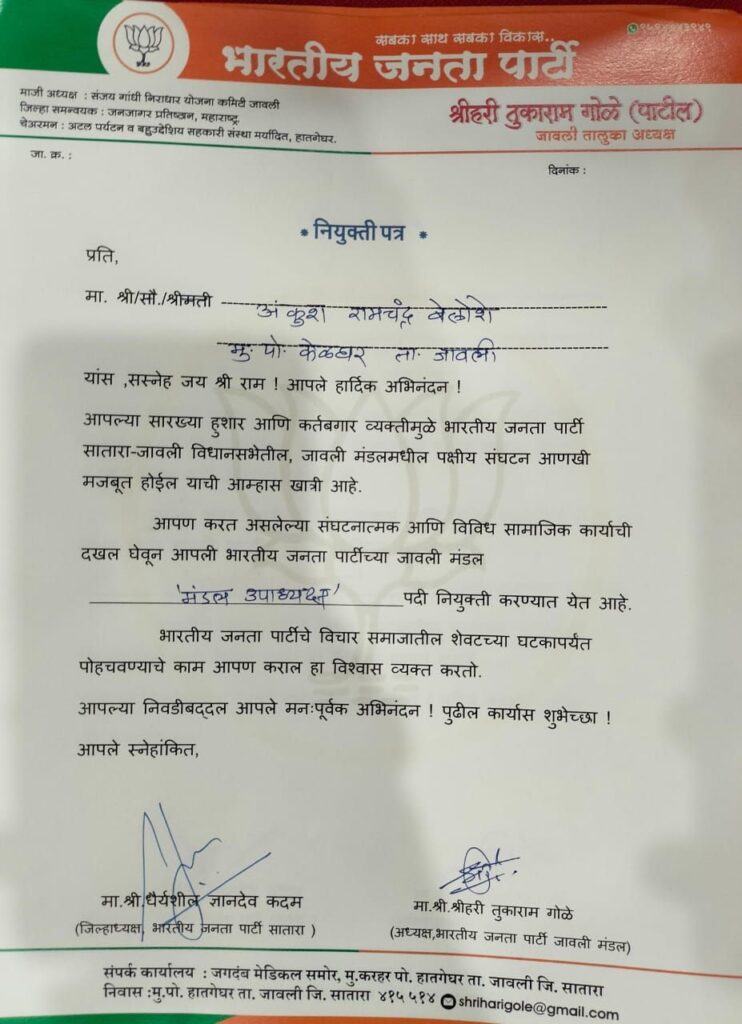 सबका साथ सबका विकास..
भारतीय जनता पार्टी
माजी अध्यक्ष : संजय गांधी निराधार योजना कमिटी जावली
जिल्हा समन्वयक : जनजागर प्रतिष्ठान, महाराष्ट्र.
चेअरमन : अटल पर्यटन व बहुउद्देशिय सहकारी संस्था मर्यादित, हातगेघर.
श्रीहरी तुकाराम गोळे (पाटील)
जावली तालुका अध्यक्ष
जा. क्र. :
दिनांक :
* नियुक्ती पत्र *
प्रति,
मा. श्री/सौ./श्रीमती अंकुश रामचंद्र बेलोशे
मु. पो. केळघर ता. जावली
यांस ,सस्नेह जय श्री राम ! आपले हार्दिक अभिनंदन !
आपल्या सारख्या हुशार आणि कर्तबगार व्यक्तीमुळे भारतीय जनता पार्टी
सातारा-जावली विधानसभेतील, जावली मंडलमधील पक्षीय संघटन आणखी
मजबूत होईल याची आम्हास खात्री आहे.
आपण करत असलेल्या संघटनात्मक आणि विविध सामाजिक कार्याची
दखल घेवून आपली भारतीय जनता पार्टीच्या जावली मंडल
'मंडल उपाध्यक्ष' पदी नियुक्ती करण्यात येत आहे.
भारतीय जनता पार्टीचे विचार समाजातील शेवटच्या घटकापर्यंत
पोहचवण्याचे काम आपण कराल हा विश्वास व्यक्त करतो.
आपल्या निवडीबद्दल आपले मनःपूर्वक अभिनंदन ! पुढील कार्यास शुभेच्छा !
आपले स्नेहांकित,
मा.श्री.धैर्यशील ज्ञानदेव कदम
(जिल्हाध्यक्ष, भारतीय जनता पार्टी सातारा )
मा.श्री.श्रीहरी तुकाराम गोळे
(अध्यक्ष,भारतीय जनता पार्टी जावली मंडल)
संपर्क कार्यालय : जगदंब मेडिकल समोर, मु.करहर पो. हातगेघर ता. जावली जि. सातारा
निवास :मु.पो. हातगेघर ता. जावली जि. सातारा ४१५ ५१४ shriharigole@gmail.com